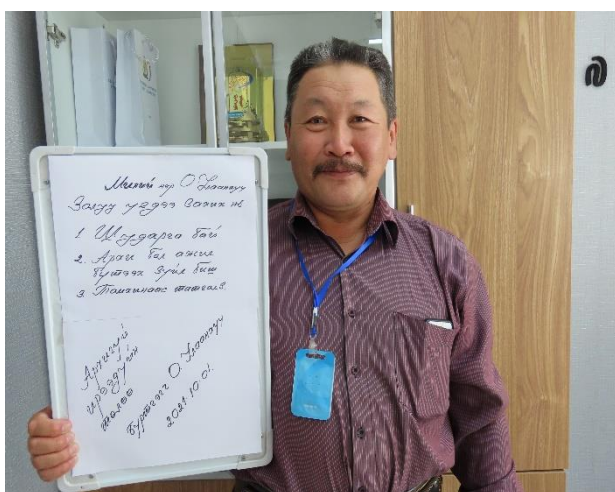 Миний нэр О
Залуу үедээ
1. Шударга бай
2. Архи бол ажил
бүтээх зүйл биш
3. Тамхинаас татгалз.
Архигүй
ирээдүйн
төлөө
О
2021.10.01.